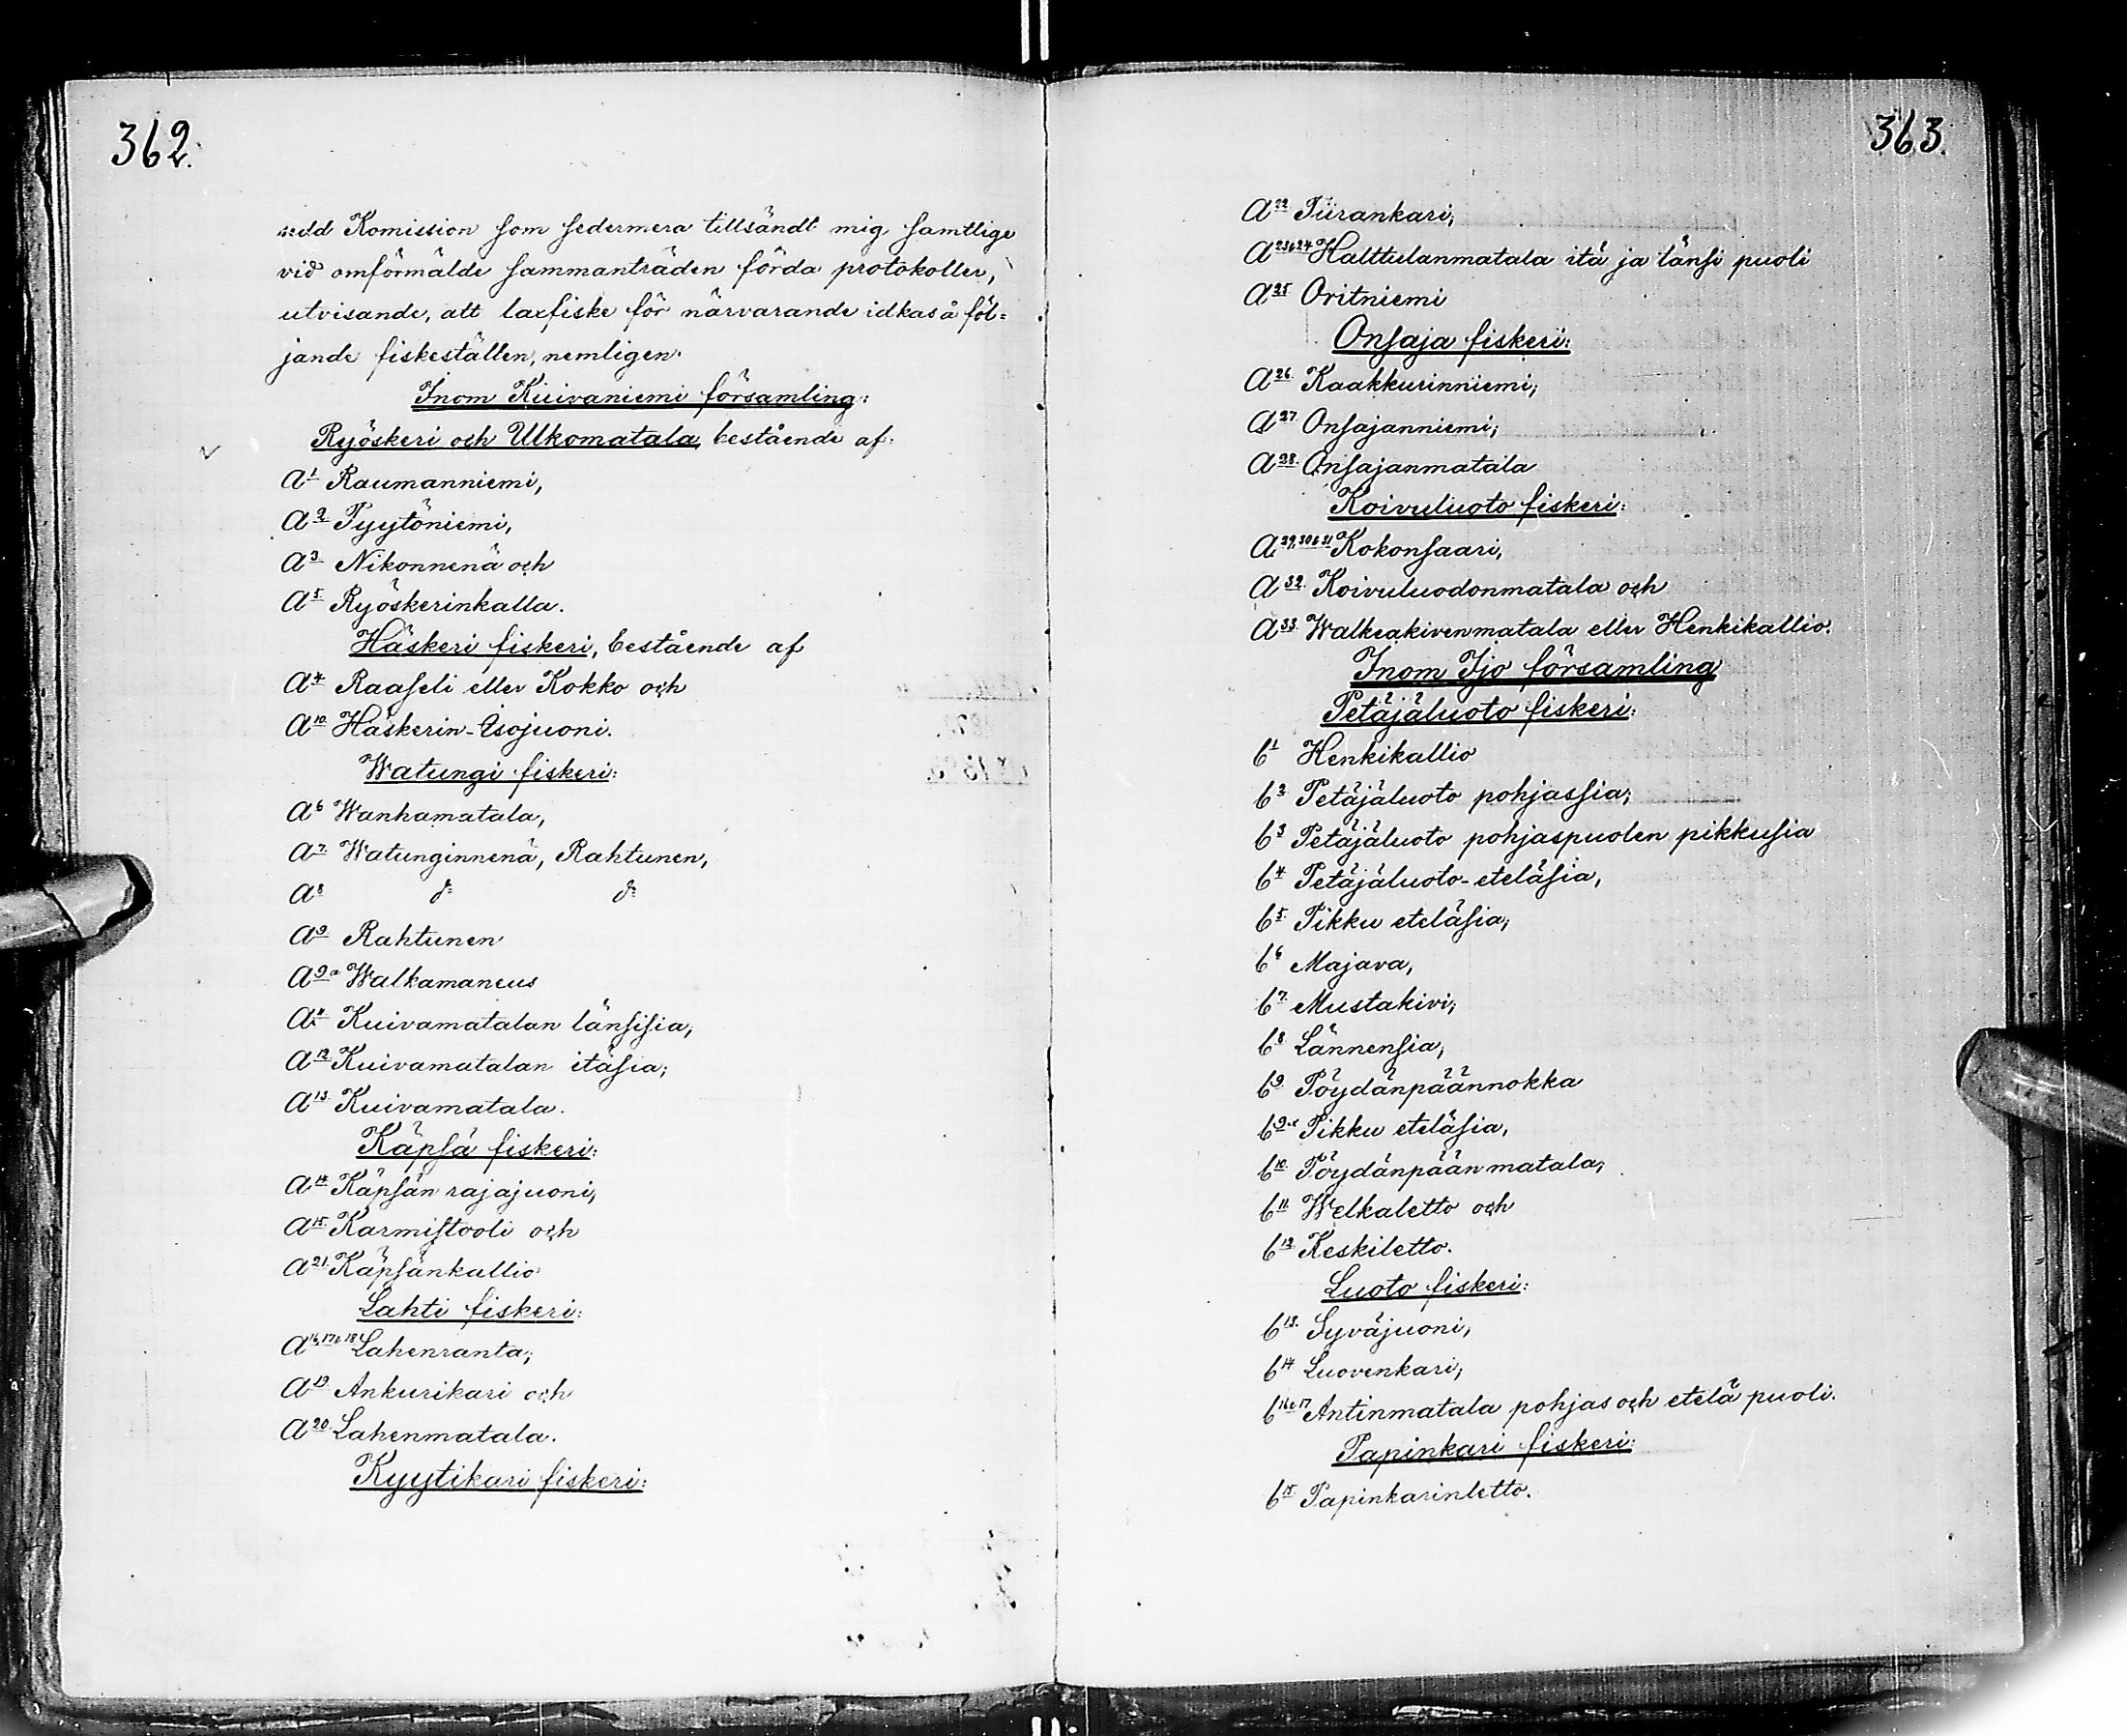 362.
sedd Komission som sedermera tillsändt mig samtlige
vid omförmälde sammanträden förda protokoller,
utvisande, att laxfiske för närvarande idkas å föl=
jande fiskeställen, nemligen:
Inom Kuivaniemi församling:
Ryöskeri och Ulkomatala, bestående af:
A1 Raumanniemi,
A2 Pyytöniemi,
A3 Nikonnenä och
A5 Ryöskerinkalla.
Häskeri fiskeri, bestående af
A4 Raaseli eller Kokko och
A10. Häskerin-Isojuoni.
Watungi fiskeri:
A6 Wanhamatala,
A7. Watunginnenä, Rahtunen,
A8 do do
A9 Rahtunen
A9a Walkamaneus
A11 Kuivamatalan länsisia,
A12 Kuivamatalan itäsia;
A13. Kuivamatala.
Käpsä fiskeri:
A14. Käpsän rajajuoni,
A15. Karmistooli och
A21. Käpsänkallio
Lahti fiskeri:
A16,17 & 18 Lahenranta;
A19. Ankurikari och
A20. Lahenmatala.
Kyytikari fiskeri:
363.
A22 Tiirankari,
A23&24 Halttulanmatala itä ja länsi puoli
A25 Oritniemi
Onsaja fiskeri:
A26. Kaakkurinniemi,
A27 Onsajanniemi,
A28. Onsajanmatala
Koivuluoto fiskeri:
A29,30&31 Kokonsaari,
A32. Koivuluodonmatala och
A33. Walkeakivenmatala eller Henkikallio.
Inom Ijo församling
Petäjäluoto fiskeri:
b1 Henkikallio
b2 Petäjäluoto pohjassia,
b3 Petäjäluoto pohjaspuolen pikkusia
b4 Petäjäluoto-eteläsia,
b5. Pikku eteläsia,
b6 Majava,
b7. Mustakivi,
b8 Lännensia,
b9. Pöydänpäännokka
b9a Pikku eteläsia,
b10. Pöydänpään matala,
b11. Welkaletto och
b12 Keskiletto.
Luoto fiskeri:
b13. Syväjuoni,
b14 Luovenkari,
b16&17 Antinmatala pohjas och etelä puoli.
Papinkari fiskeri:
b15. Papinkarinletto.